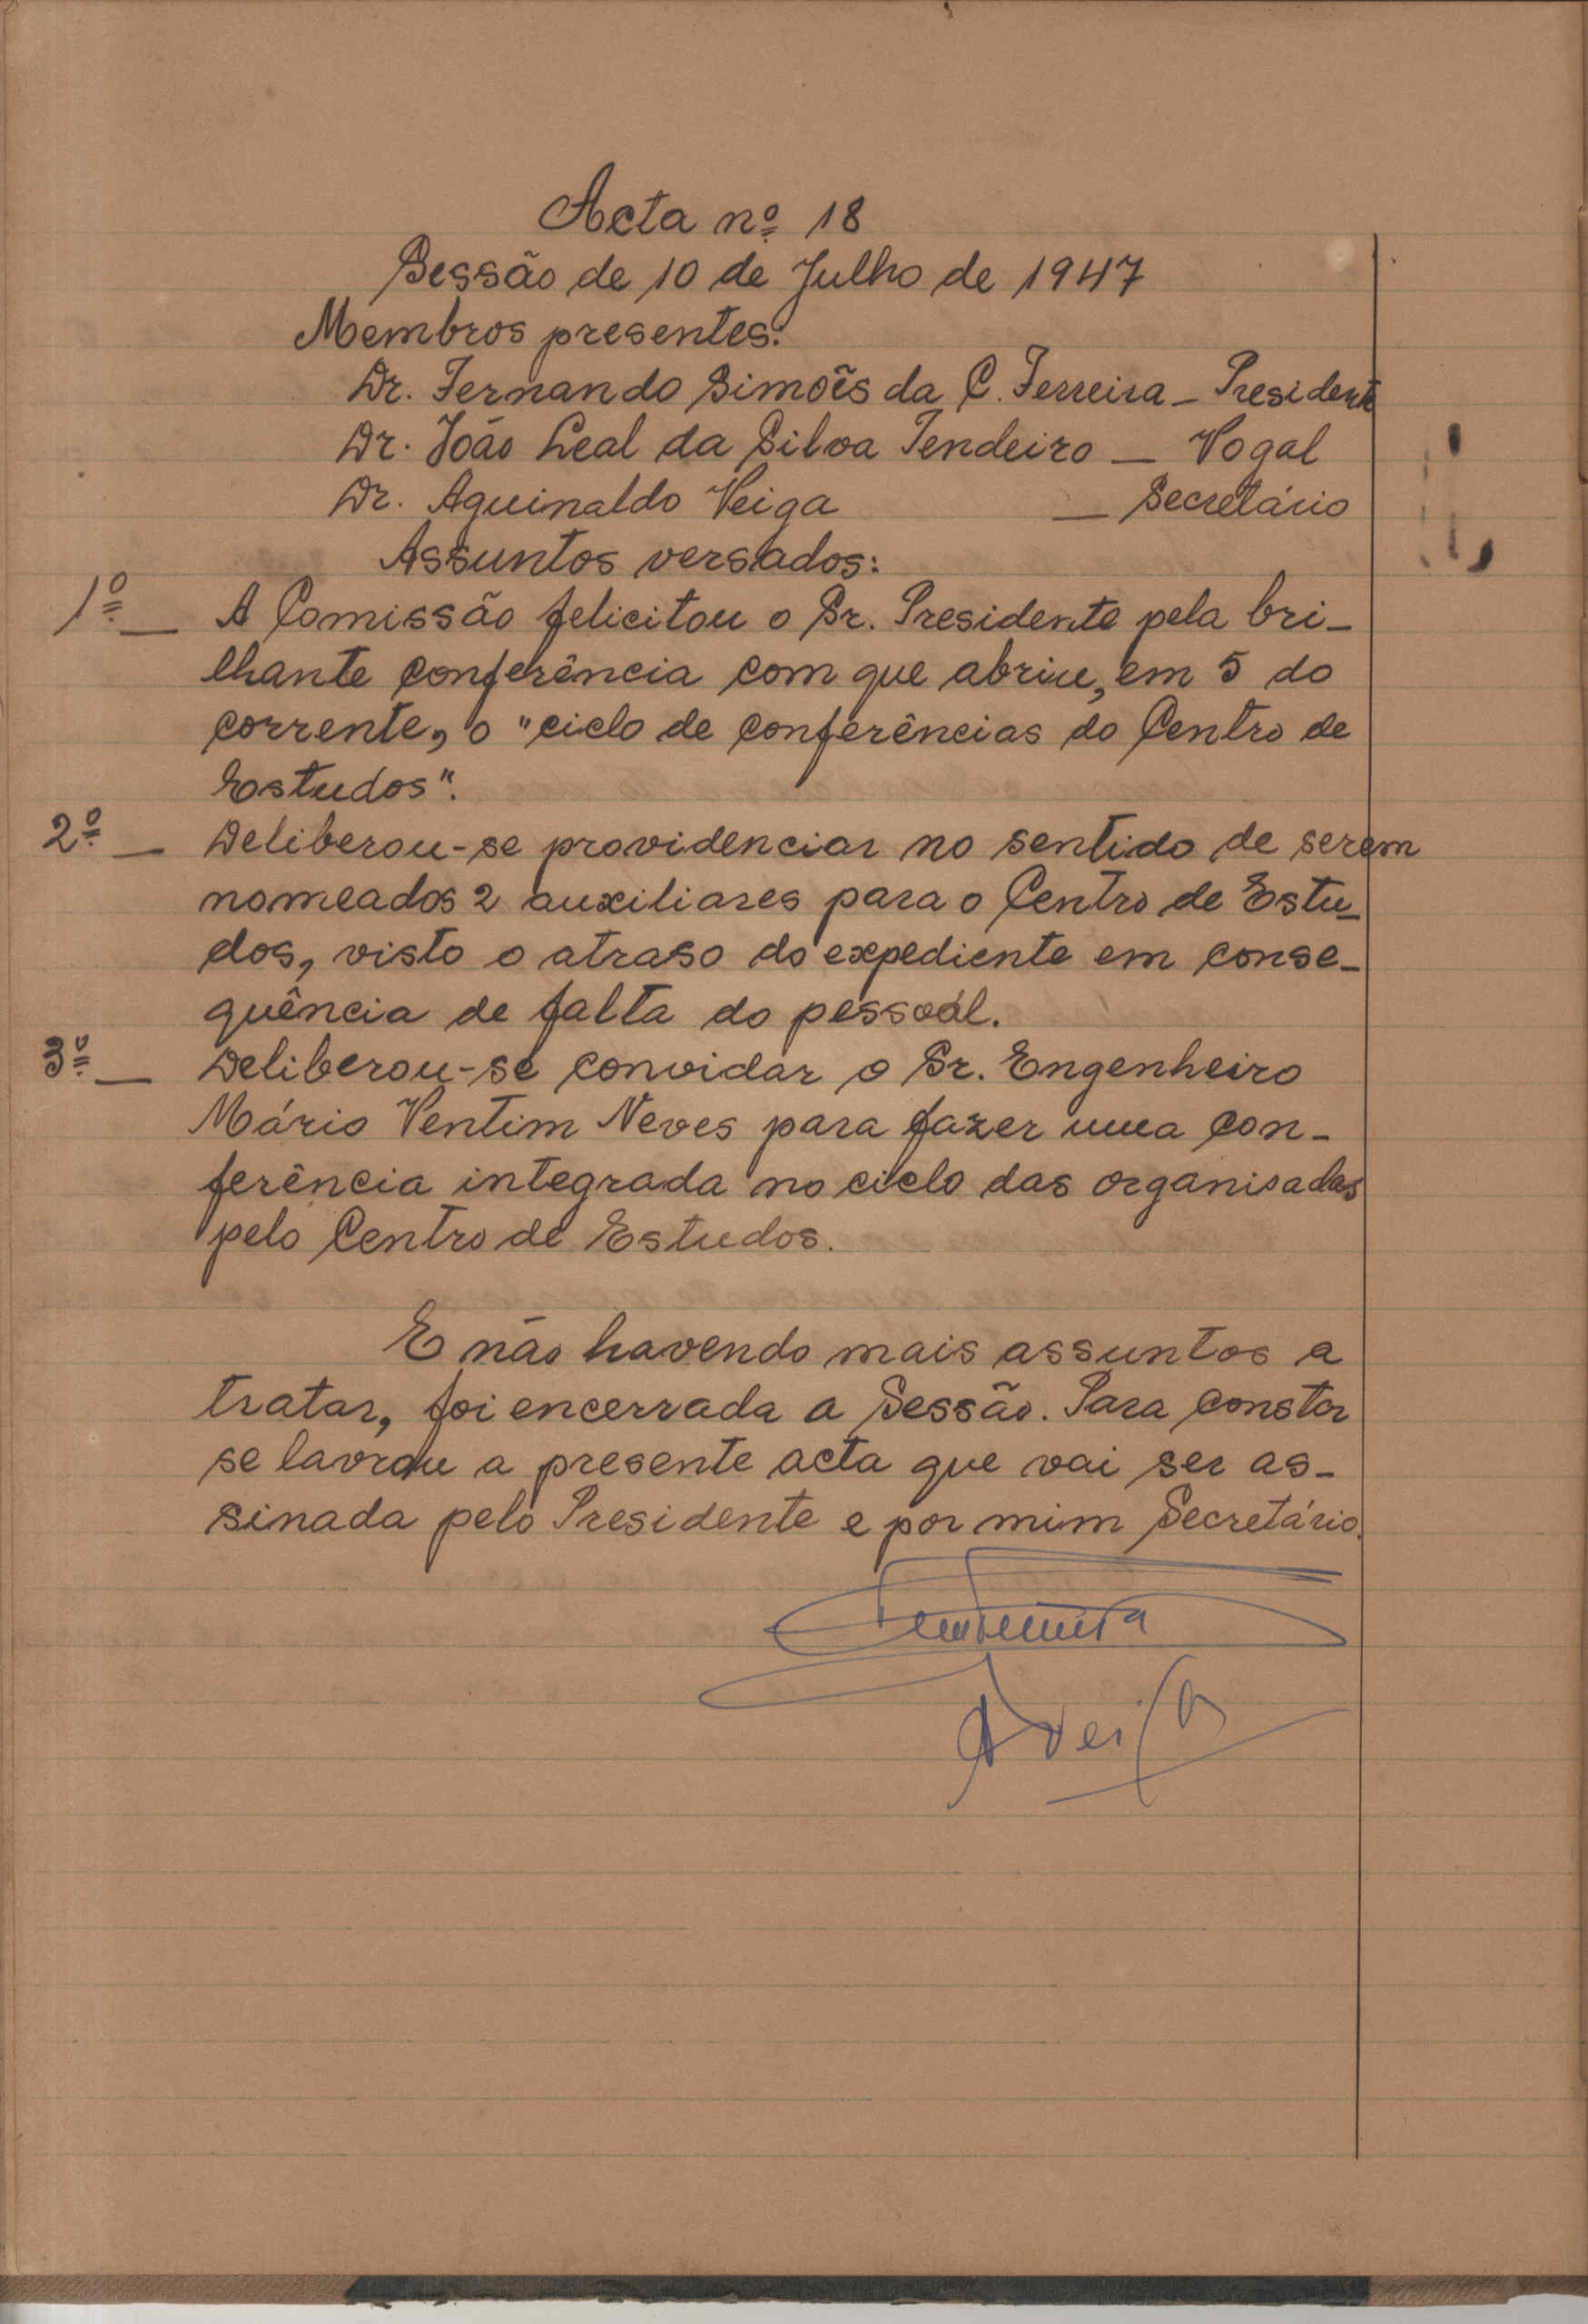 Acta nº 18
Sessão de 10 de Julho de 1947
Membros presentes:
Dr. Fernando Simões da C. Ferreira — Presidente
Dr. João Leal da Silva Tendeiro — Vogal
Dr. Aguinaldo Veiga — Secretário
Assuntos versados:
1º — A Comissão felicitou o Sr. Presidente pela bri-
lhante conferência com que abriu, em 5 do
corrente, o "ciclo de conferências do Centro de
Estudos".
2º — Deliberou-se providenciar no sentido de serem
nomeados 2 auxiliares para o Centro de Estu-
dos, visto o atraso do expediente em conse-
quência de falta do pessoal.
3º — Deliberou-se convidar o Sr. Engenheiro
Mário Ventim Neves para fazer uma con-
ferência integrada no ciclo das organisadas
pelo Centro de Estudos.
E não havendo mais assuntos a
tratar, foi encerrada a Sessão. Para constar
se lavrou a presente acta que vai ser as-
sinada pelo Presidente e por mim Secretário.
AVeiga